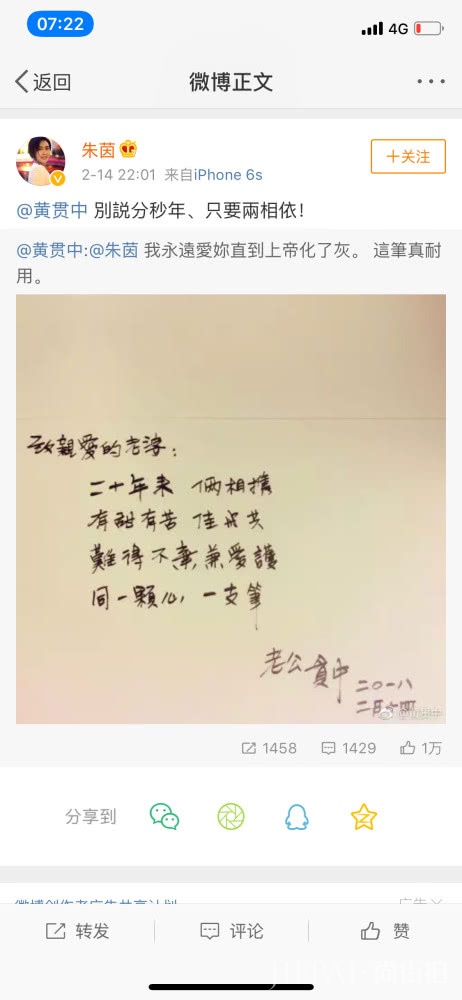 07:22
4G
返回
微博正文
朱茵
2-14 22:01 来自iPhone 6s
十关注
@黄贯中 別説分秒年、只要兩相依!
@黄贯中:@朱茵 我永遠愛妳直到上帝化了灰。這筆真耐
用。
致親愛的老婆:
二十年来 倆相擕
有甜有苦 佳
難得不棄,兼愛護
同一顆心,一支筆
老公貫中
二〇一八
二月十四
1458 1429 1万
分享到
微博创作者广告共享计划
广告
转发 评论 赞